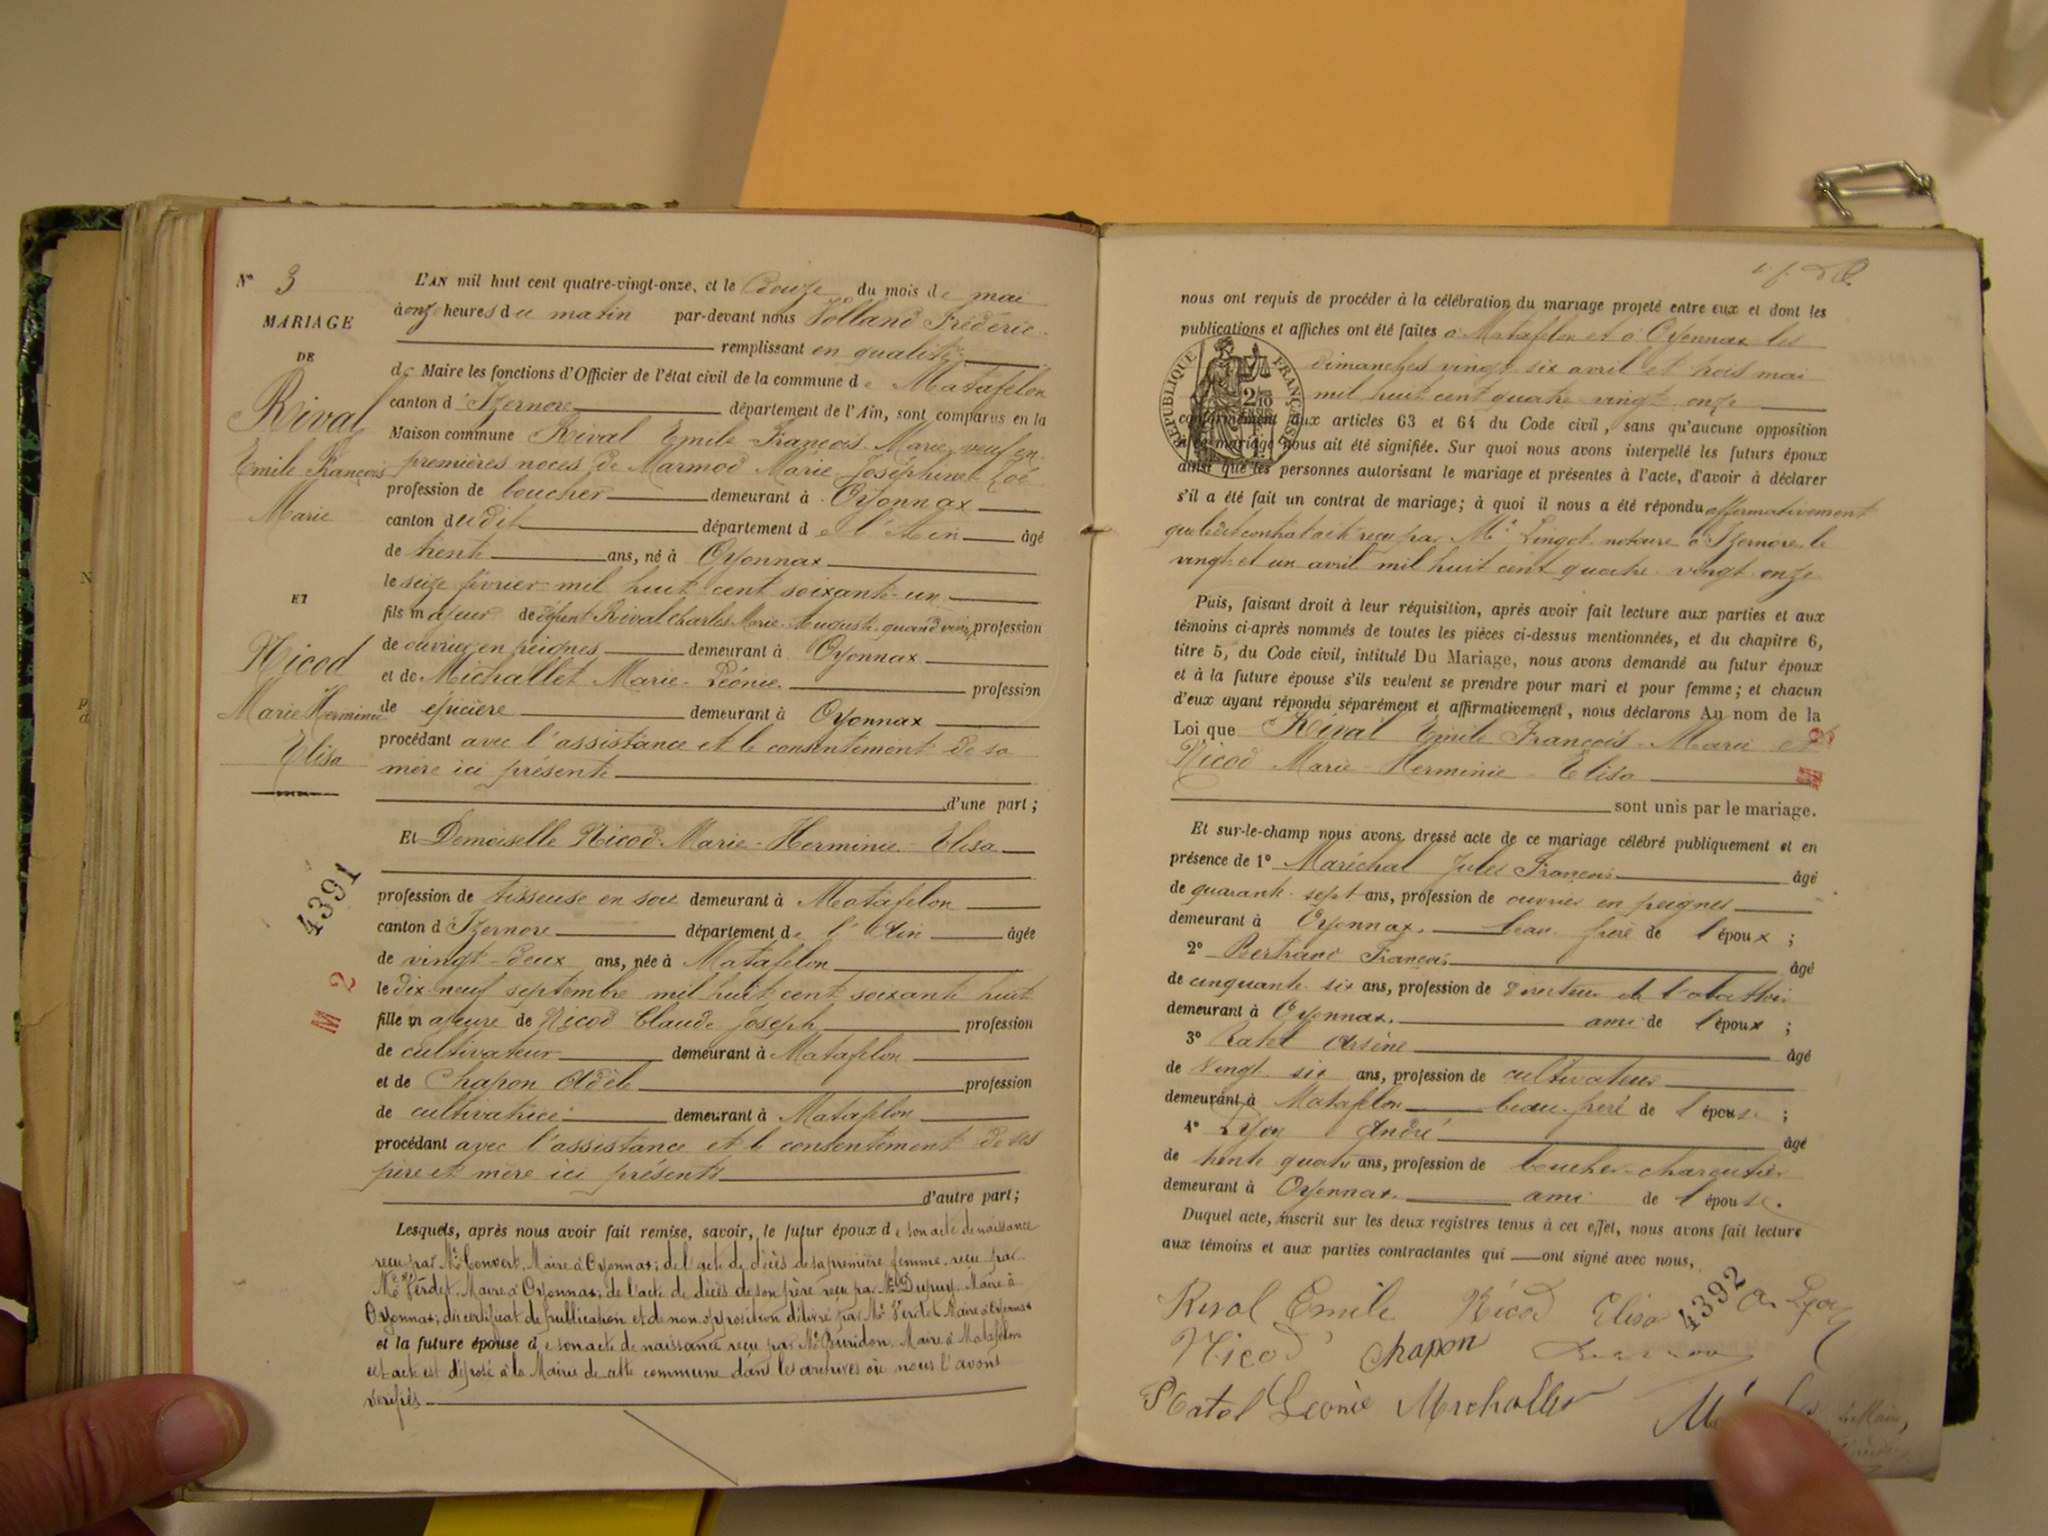 N° 3
MARIAGE
DE
Rival
Emile François
Marie
ET
Nicod
Marie Herminie
Elisa
4391
M 2
L'AN mil huit cent quatre-vingt-onze, et le Douze du mois de mai
à onze heures du matin par-devant nous Volland Frédéric
remplissant en qualité
de Maire les fonctions d'Officier de l'état civil de la commune de Matafelon
canton d'Izernore département de l'Ain, sont comparus en la
Maison commune Rival Emile François Marie, veuf en
premières noces de Marmod Marie Joséphine Zoé
profession de boucher demeurant à Oyonnax
canton dudit département de l'Ain âgé
de trente ans, né à Oyonnax
le seize février mil huit cent soixante-un
fils majeur de défunt Rival Charles Marie Auguste quand vivait profession
de ouvrier en peignes demeurant à Oyonnax
et de Michallet Marie-Léonie profession
de épicière demeurant à Oyonnax
procédant avec l'assistance et le consentement de sa
mère ici présente
d'une part;
Et Demoiselle Nicod Marie-Herminie-Elisa
profession de tisseuse en soie demeurant à Matafelon
canton d'Izernore département de l'Ain âgée
de vingt-deux ans, née à Matafelon
le dix-neuf septembre mil huit cent soixante huit
fille majeure de Nicod Claude Joseph profession
de cultivateur demeurant à Matafelon
et de Chapon Adèle profession
de cultivatrice demeurant à Matafelon
procédant avec l'assistance et le consentement de ses
père et mère ici présents
d'autre part;
Lesquels, après nous avoir fait remise, savoir, le futur époux de son acte de naissance
reçu par Mr Convert, Maire à Oyonnax; de l'acte de décès de sa première femme reçu par
Mr Verdet, Maire à Oyonnax; de l'acte de décès de son père reçu par Mr Dupuy, Maire à
Oyonnax; du certificat de publication et de non opposition délivré par Mr Verdet Maire à Oyonnax
et la future épouse de son acte de naissance reçu par Mr Maire à Matafelon
cet acte est déposé à la Mairie de cette commune dans les archives où nous l'avons
vérifiés
nous ont requis de procéder à la célébration du mariage projeté entre eux et dont les
publications et affiches ont été faites à Matafelon et à Oyonnax les
dimanches vingt six avril et trois mai
mil huit cent quatre vingt onze
RÉPUBLIQUE FRANÇAISE
conformément aux articles 63 et 64 du Code civil, sans qu'aucune opposition
à ce mariage nous ait été signifiée. Sur quoi nous avons interpellé les futurs époux
ainsi que les personnes autorisant le mariage et présentes à l'acte, d'avoir à déclarer
s'il a été fait un contrat de mariage; à quoi il nous a été répondu affirmativement
que ledit contrat a été reçu par Me Lingot notaire à Izernore le
vingt et un avril mil huit cent quatre vingt onze
Puis, faisant droit à leur réquisition, après avoir fait lecture aux parties et aux
témoins ci-après nommés de toutes les pièces ci-dessus mentionnées, et du chapitre 6,
titre 5, du Code civil, intitulé Du Mariage, nous avons demandé au futur époux
et à la future épouse s'ils veulent se prendre pour mari et pour femme; et chacun
d'eux ayant répondu séparément et affirmativement, nous déclarons Au nom de la
Loi que Rival Emile François-Marie et
Nicod Marie-Herminie-Elisa
sont unis par le mariage.
Et sur-le-champ nous avons dressé acte de ce mariage célébré publiquement et en
présence de 1° Maréchal Jules François âgé
de quarante-sept ans, profession de ouvrier en peignes
demeurant à Oyonnax beau frère de l'époux;
2° Bertrand François âgé
de cinquante six ans, profession de directeur de l'abattoir
demeurant à Oyonnax ami de l'époux;
3° Ratel Arsène âgé
de vingt six ans, profession de cultivateur
demeurant à Matafelon beau-frère de l'épouse;
4° Lyon André âgé
de trente quatre ans, profession de boucher-charcutier
demeurant à Oyonnax ami de l'épouse.
Duquel acte, inscrit sur les deux registres tenus à cet effet, nous avons fait lecture
aux témoins et aux parties contractantes qui ont signé avec nous,
Rival Emile Nicod Elisa 4392 A. Lyon
Nicod Chapon
Ratel Léonie Michallet